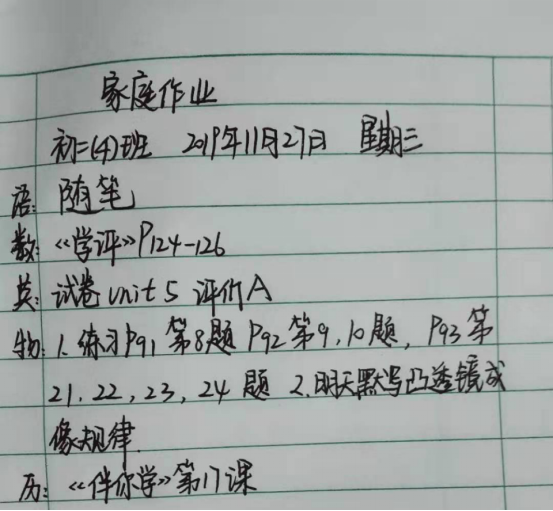 家庭作业
初二(4)班 2019年11月27日 星期三
语: 随笔
数: 《学评》P124-126
英: 试卷 unit 5 评价A
物: 1. 练习P91 第8题 P92 第9, 10题, P93 第
21, 22, 23, 24 题 2. 明天默写凸透镜成
像规律
历: 《伴你学》第17课